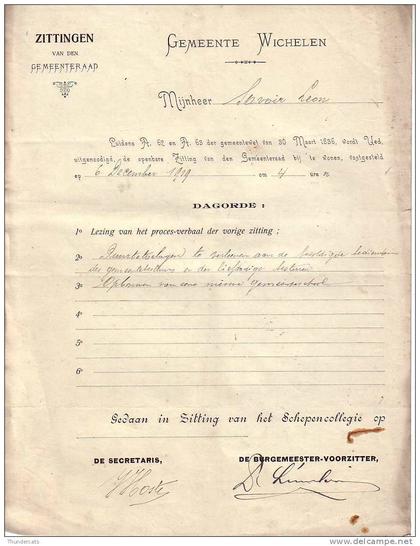 ZITTINGEN
VAN DEN
GEMEENTERAAD
GEMEENTE WICHELEN
Mijnheer Servoir Leon
Luidens Art. 62 en Art. 63 der gemeentewet van 30 Maart 1836, wordt Ued.
uitgenoodigd, de openbare Zitting van den Gemeenteraad bij te wonen, vastgesteld
op 6 December 1919 om 4 ure
DAGORDE :
1º Lezing van het proces-verbaal der vorige zitting ;
2º te verleenen aan de
des gemeentebestuurs en der
3º Opbouwen van eene nieuwe gemeenteschool
4º
5º
6º
Gedaan in Zitting van het Schepencollegie op
DE SECRETARIS,
DE BURGEMEESTER-VOORZITTER,
Thundercats
delcampe.net